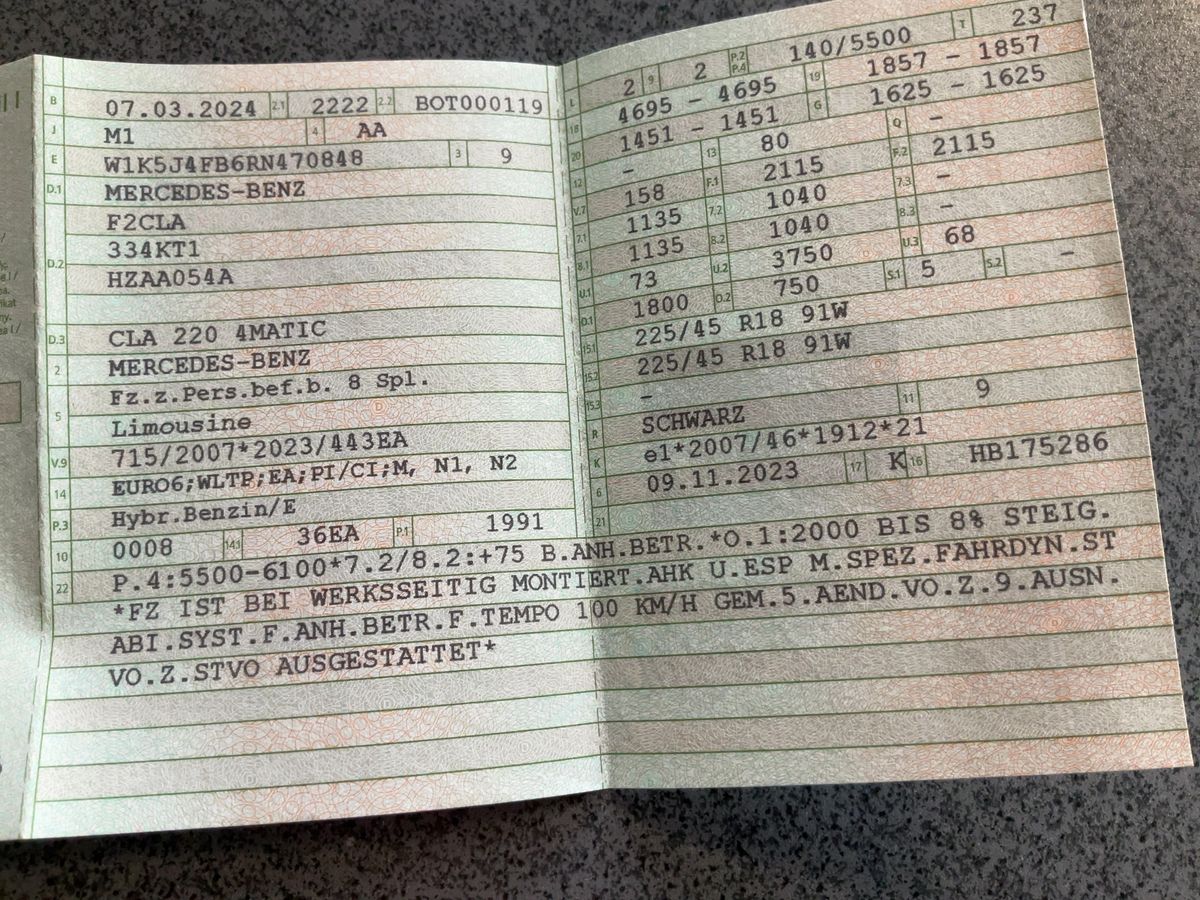 B 07.03.2024 2.1 2222 2.2 BOT000119
J M1 4 AA
E W1K5J4FB6RN470848 3 9
D.1 MERCEDES-BENZ
F2CLA
D.2 334KT1
HZAA054A
D.3 CLA 220 4MATIC
2 MERCEDES-BENZ
5 Fz.z.Pers.bef.b. 8 Spl.
Limousine
V.9 715/2007*2023/443EA
14 EURO6;WLTP;EA;PI/CI;M, N1, N2
P.3 Hybr.Benzin/E
10 0008 14.1 36EA P.1 1991
L 2 9 2 P.2 P.4 140/5500 T 237
18 4695 - 4695 19 1857 - 1857
20 1451 - 1451 G 1625 - 1625
12 - 13 80 Q -
V.7 158 F.1 2115 F.2 2115
7.1 1135 7.2 1040 7.3 -
8.1 1135 8.2 1040 8.3 -
U.1 73 U.2 3750 U.3 68
O.1 1800 O.2 750 S.1 5 S.2 -
15.1 225/45 R18 91W
15.2 225/45 R18 91W
15.3 -
R SCHWARZ 11 9
K e1*2007/46*1912*21
6 09.11.2023 17 K 16 HB175286
21
22 P.4:5500-6100*7.2/8.2:+75 B.ANH.BETR.*O.1:2000 BIS 8% STEIG.
*FZ IST BEI WERKSSEITIG MONTIERT.AHK U.ESP M.SPEZ.FAHRDYN.ST
ABI.SYST.F.ANH.BETR.F.TEMPO 100 KM/H GEM.5.AEND.VO.Z.9.AUSN.
VO.Z.STVO AUSGESTATTET*